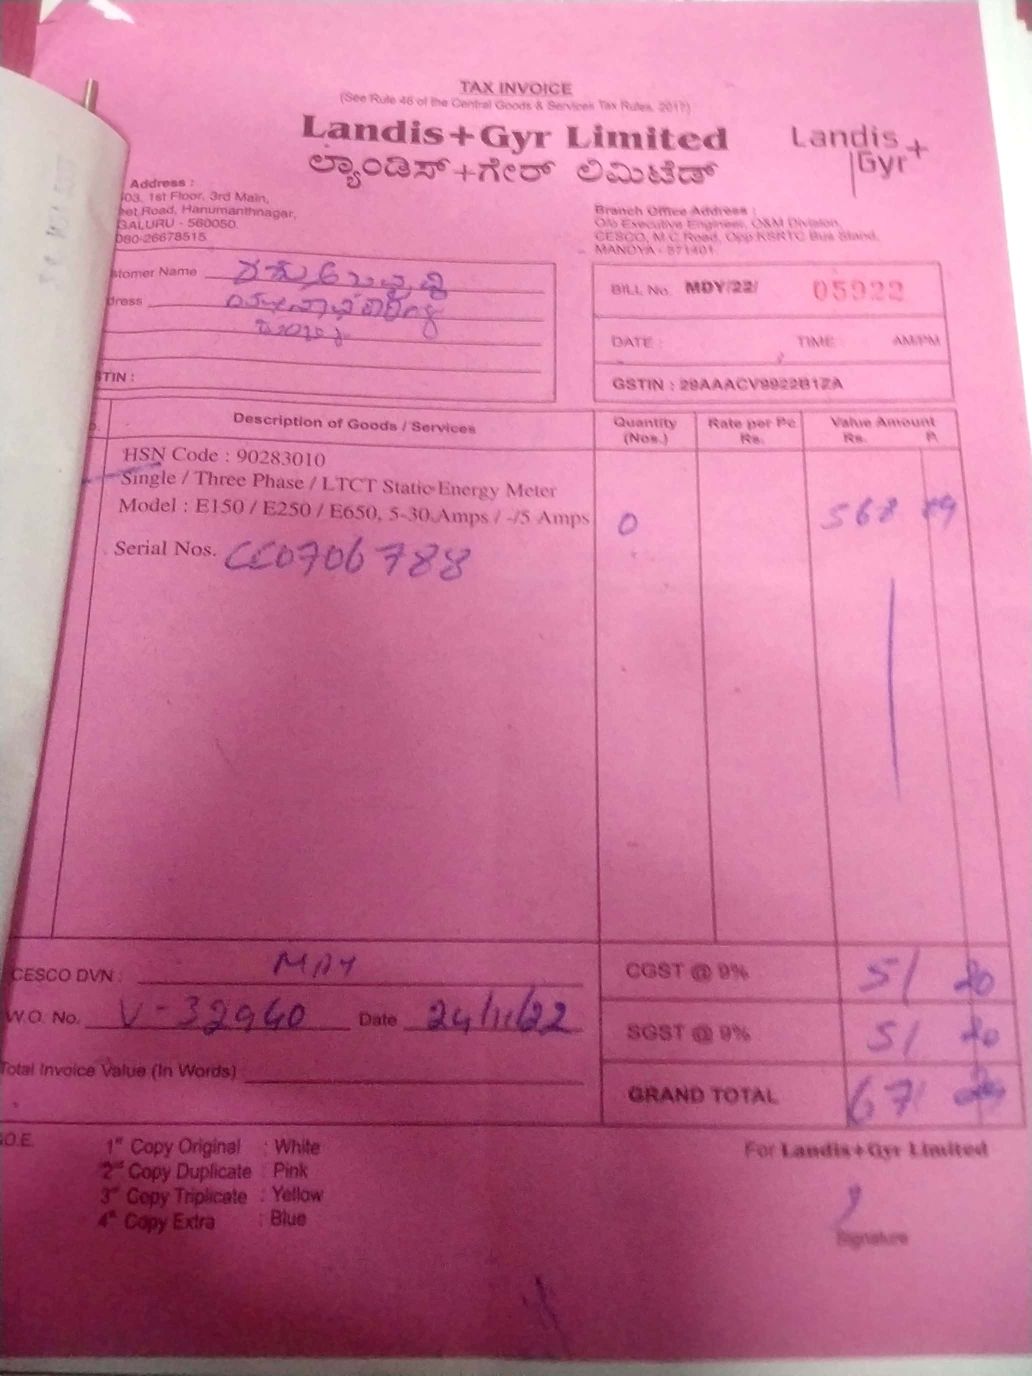 TAX INVOICE
(See Rule 46 of the Central Goods & Services Tax Rules, 2017)
Landis+Gyr Limited
ಲ್ಯಾಂಡಿಸ್+ಗೇರ್ ಲಿಮಿಟೆಡ್
Landis
Gyr+
Address :
03, 1st Floor, 3rd Main,
Road, Hanumanthnagar,
GALURU - 560050.
080-26678515
Branch Office Address :
O/o Executive Engineer, O&M Division,
CESCO, M.C Road, Opp KSRTC Bus Stand,
MANDYA - 571401.
stomer Name
dress
STIN :
BILL No. MDY/22/ 05922
DATE : TIME AM/PM
GSTIN : 29AAACV9922B1ZA
Description of Goods / Services
Quantity (Nos.)
Rate per Pc Rs.
Value Amount
Rs. P.
HSN Code : 90283010
Single / Three Phase / LTCT Static Energy Meter
Model : E150 / E250 / E650, 5-30 Amps / -/5 Amps 0 568 89
Serial Nos. CC0706788
CESCO DVN : MDY
W.O. No. V-32940 Date 24/11/22
Total Invoice Value (In Words)
CGST @ 9% 51 20
SGST @ 9% 51 20
GRAND TOTAL 671
.O.E.
1st Copy Original : White
2nd Copy Duplicate : Pink
3rd Copy Triplicate : Yellow
4th Copy Extra : Blue
For Landis+Gyr Limited
Signature